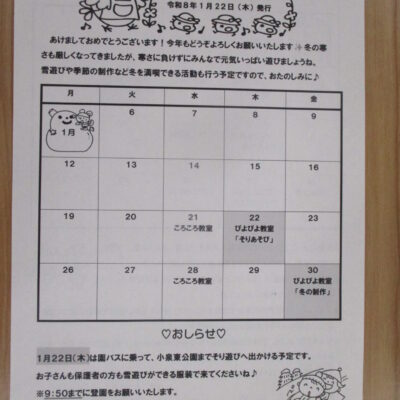 令和８年１月２２日（木）発行
あけましておめでとうございます！今年もどうぞよろしくお願いいたします✨冬の寒
さも厳しくなってきましたが、寒さに負けずにみんなで元気いっぱい遊びましょうね。
雪遊びや季節の制作など冬を満喫できる活動も行う予定ですので、おたのしみに♪
月 火 水 木 金
1月 6 7 8 9
12 13 14 15 16
19 20 21 22 23
ころころ教室 ぴよぴよ教室
「そりあそび」
26 27 28 29 30
ころころ教室 ぴよぴよ教室
「冬の制作」
♡おしらせ♡
1月22日(木)は園バスに乗って、小泉東公園までそり遊びへ出かける予定です。
お子さんも保護者の方も雪遊びができる服装で来てくださいね♪
※9:50までに登園をお願いいたします。